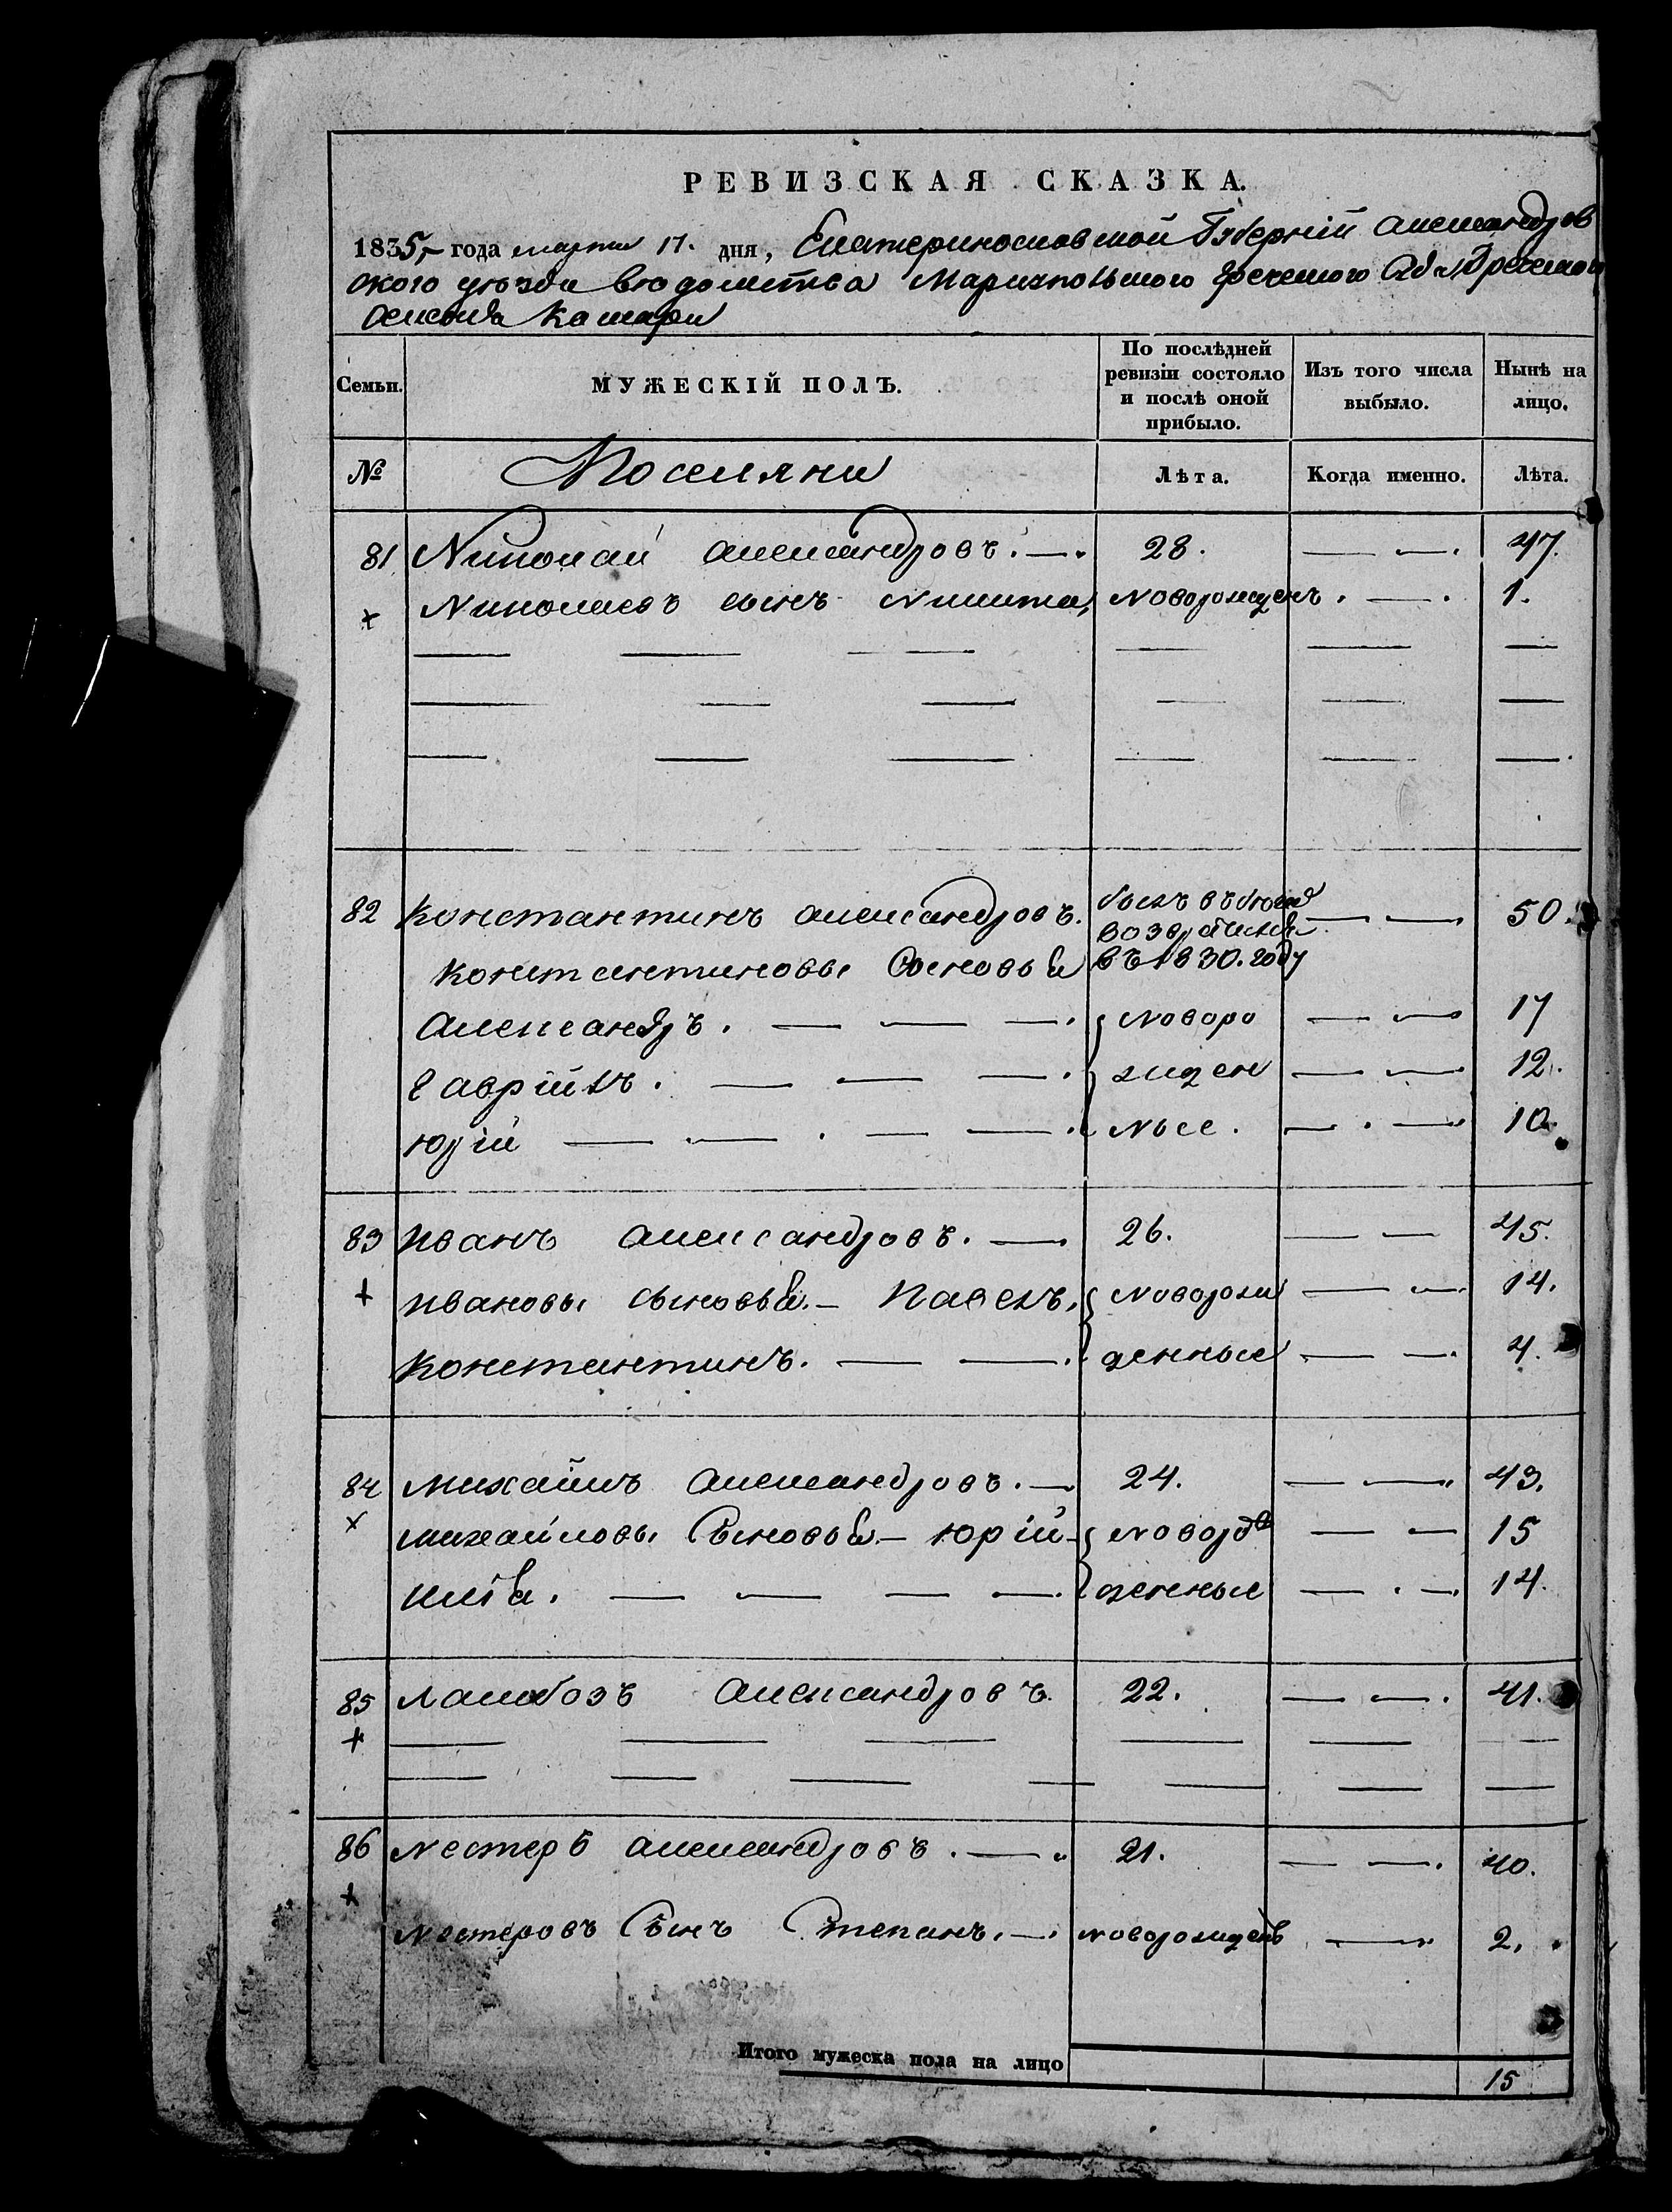 РЕВИЗСКАЯ СКАЗКА.
1835, года марта 17. дня, Екатеринославской Губерніи Александров
ского уезда ведомства Мариупольского греческого Суда, Греческой
селенія Камари
Семьи. МУЖЕСКІЙ ПОЛЪ. По послѣдней ревизіи состояло и послѣ оной прибыло. Изъ того числа выбыло. Нынѣ на лицо.
№ Поселяне Лѣта. Когда именно. Лѣта.
81 Николай Александровъ. 28. 47.
Николаевъ сынъ Никита, новорожденъ. 1.
82 Константинъ Александровъ. былъ въ бегах возвратился въ 1830. году 50.
Константиновы Сыновья
Александръ. новоро 17
Гавріилъ. жден 12.
Юрій ные. 10.
83 Иванъ Александровъ. 26. 45.
Ивановы сыновья. Павелъ, новорож 14.
Константинъ. денные 4.
84 Михаилъ Александровъ. 24. 43.
Михайловы Сыновья Юрій новорож 15
Илія. денные 14.
85 Александровъ. 22. 41.
86 Нестеръ Александровъ. 21. 40.
Нестеровъ Сынъ Степанъ. новорожденъ 2.
Итого мужеска пола на лицо 15